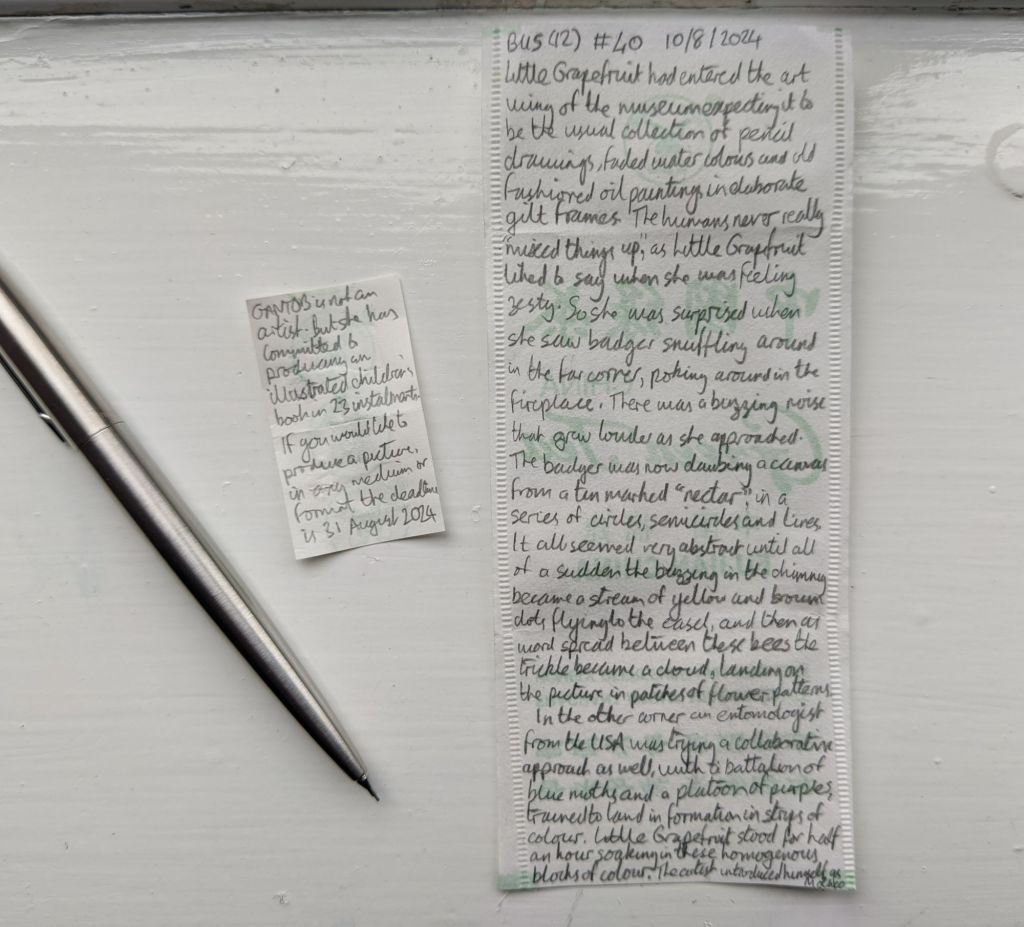 GANTOB is not an
artist. But she has
committed to
producing an
illustrated children's
book in 23 instalments.
If you would like to
produce a picture,
in any medium or
format the deadline
is 31 August 2024
BUS (12) #40 10/8/2024
Little Grapefruit had entered the art
wing of the museum expecting it to
be the usual collection of pencil
drawings, faded water colours and old
fashioned oil paintings in elaborate
gilt frames. The humans never really
"mixed things up," as Little Grapfruit
liked to say when she was feeling
zesty. So she was surprised when
she saw badger snuffling around
in the far corner, poking around in the
fireplace. There was a buzzing noise
that grew louder as she approached.
The badger was now daubing a canvas
from a tin marked "nectar", in a
series of circles, semicircles and lines.
It all seemed very abstract until all
of a sudden the buzzing in the chimney
became a stream of yellow and brown
dots flying to the easel, and then as
word spread between these bees the
trickle became a cloud, landing on
the picture in patches of flower patterns.
In the other corner an entomologist
from the USA was trying a collaborative
approach as well, with a battalion of
blue moths and a platoon of purples,
trained to land in formation in strips of
colour. Little Grapefruit stood for half
an hour soaking in these homogenous
blocks of colour. The artist introduced himself as